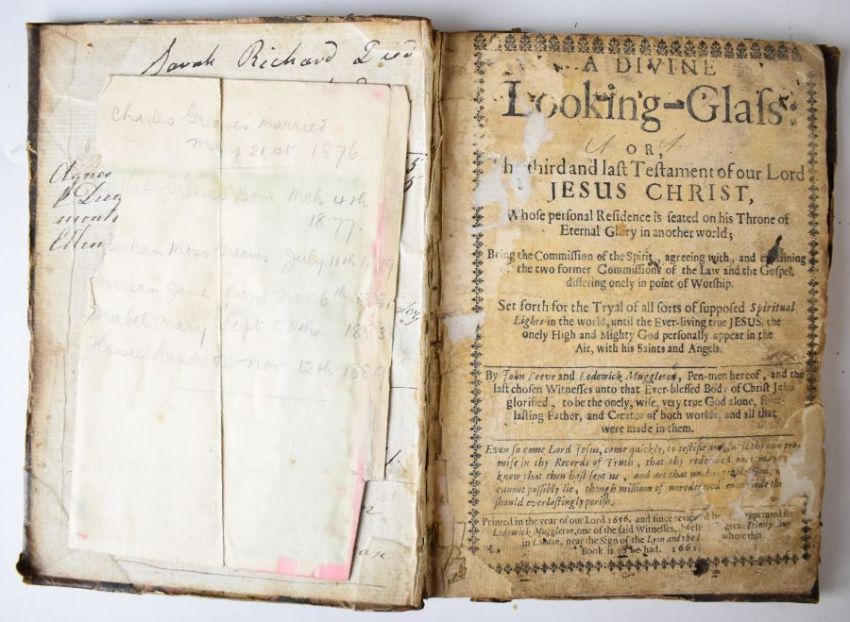 Sarah Richard Died
Agnes
Ellen
Charles Greaves married
May 21st 1876.
Greaves Born Mch 4th
1877.
Moss Greaves July 11th
Jane Born Nov 6th
Mabel Mary Sept 25th 1883
Nov 12th
A DIVINE
Looking-Glaſs:
OR,
Third and laſt Teſtament of our Lord
JESUS CHRIST,
Whoſe perſonal Reſidence is ſeated on his Throne of
Eternal Glory in another world;
Being the Commiſſion of the Spirit, agreeing with, and explaining
the two former Commiſſions of the Law and the Goſpel,
differing onely in point of Worſhip.
Set forth for the Tryal of all ſorts of ſuppoſed Spiritual
Lights in the world, until the Ever-living true JESUS, the
onely High and Mighty God perſonally appear in the
Air, with his Saints and Angels.
By John Reeve and Lodowick Muggleton, Pen-men hereof, and the
laſt choſen Witneſſes unto that Ever-bleſſed Body of Chriſt Jeſus
glorified, to be the onely, wiſe, very true God alone, Ever-
laſting Father, and Creator of both worlds, and all that
were made in them.
Even ſo come Lord Jeſus, come quickly, to teſtifie and thy own pro-
miſe in thy Records of Truth, that thy redeemed ones may
know that thou haſt ſent us, and art that God,
cannot poſſibly lie, though millions of unredeemed
ſhould everlaſtingly periſh.
Printed in the year of our Lord 1656. and ſince reprinted for
Lodowick Muggleton, one of the ſaid Witneſſes, great Trinity
in London, near the Sign of the Lyon and the where this
Book is to be had. 1661.